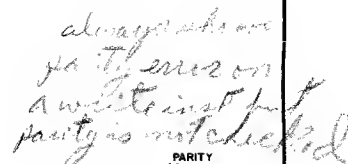 always show
parity error on
a write inst but
parity is not checked
PARITY